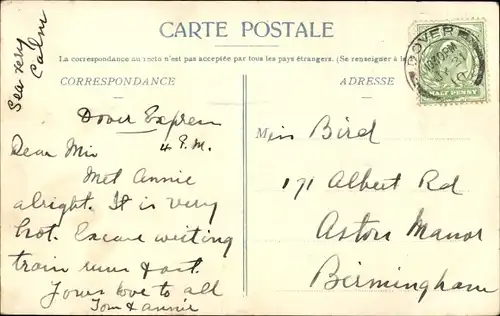 CARTE POSTALE
La correspondance au recto n'est pas acceptée par tous les pays étrangers. (Se renseigner à la
CORRESPONDANCE
ADRESSE
Sea very
Calm
Dover Express
4 P.M.
Dear Miss
Met Annie
alright. It is very
hot. Excuse writing
train runs fast.
Yours love to all
Tom & annie
Miss Bird
171 Albert Rd
Aston Manor
Birmingham
DOVER
HALF PENNY